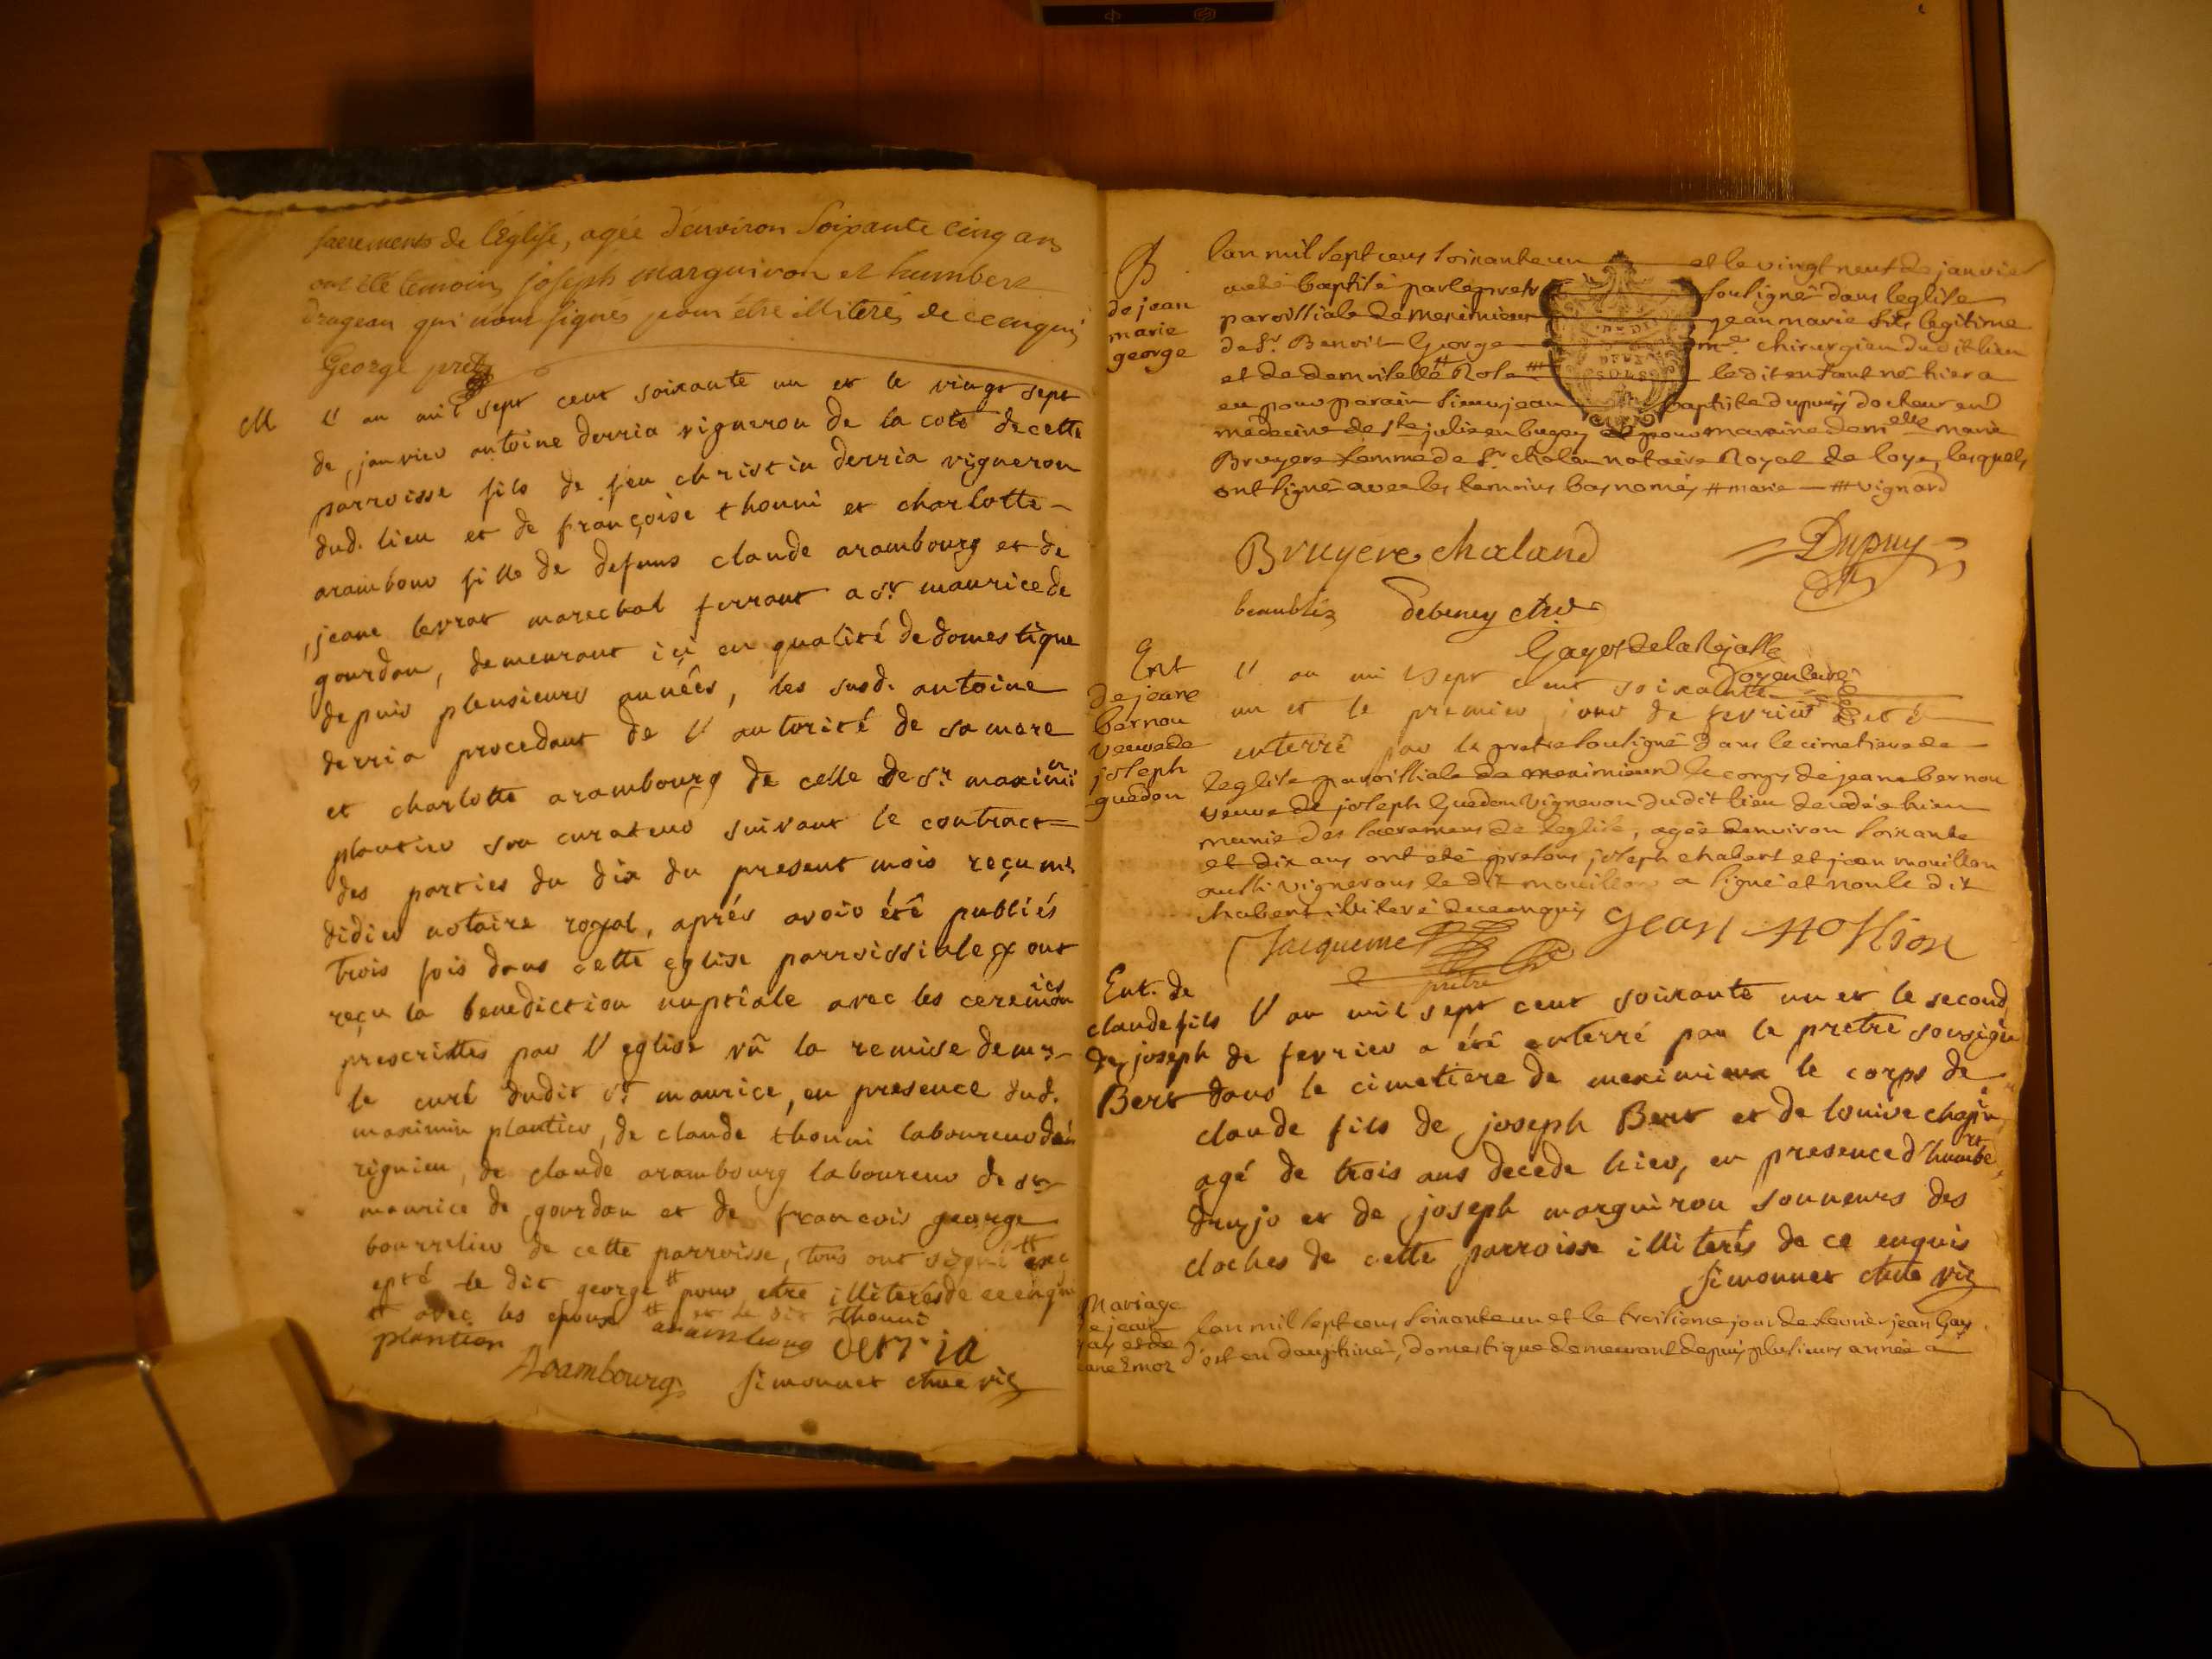 sacrements de l'Église, agée d'environ soixante cinq ans
ont été temoins joseph marguiron et humbert
drugeon qui n'ont signés pour étre illiterés de ce enquis
George pretre
M
l'an mil sept cent soixante un et le vingt sept
de janvier antoine derria vigneron de la coté de cette
parroisse fils de feu christin derria vigneron
dud. lieu et de françoise thonni et charlotte
arambour fille de defuns claude arambourg et de
jeane levrat marechal ferrant a st maurice de
gourdan, demeurant ici en qualité de domestique
depuis plusieurs années, les susd. antoine
derria procedant de l'autorité de sa mere
et charlotte arambourg de celle de sr. maximin
plantier son curateur suivant le contract
des parties du dix du present mois reçu me
didier notaire royal, aprés avoir été publiés
trois fois dans cette eglise parroissiale & ont
reçu la benediction nuptiale avec les ceremonies
prescrittes par l'eglise vû la remise de mr
le curé dudit st maurice, en presence dud.
maximin plantier, de claude thonni laboureur de
rignieu, de claude arambourg laboureur de st
maurice de gourdan et de francois george
bourrelier de cette parroisse, tous ont signé # exc
epté le dit george # pour etre illiterés de ce enquis
# avec les epoux # et le dit thonni
plantier arambourg derria
Arambourg simonnet chne vic
B
de jean
marie
george
lan mil sept cens soixante un et le vingt neuf de janvier
a eté baptisé par le pretre soussigné dans leglise
paroissiale de meximieux jean marie fils legitime
de Sr. Benoit George me. chirurgien dudit lieu
et de demoiselle # Rose ## le dit enfant né hier a
eu pour parain sieur jean baptiste dupuis docteur en
médecine de st julie en bugey et pour maraine demelle marie
Bruyere femme de Sr. chalan notaire Royal de loye, lesquels
ont signé avec les temoins bas només # marie — ## vignard
Bruyere chaland Dupuy
beaublez debeney chr
Gayot de la Rejasse
doyen curé
Ent
de jeane
bernou
veuve de
joseph
guedon
l'an mil sept cent soixante
un et le premier jour de fevrier a eté
enterré par le pretre soussigné dans le cimetiere de
leglise paroissiale de meximieux le corps de jeane bernou
veuve de joseph Guedon vigneron dudit lieu decedée hier
munie des sacremens de leglise, agée denviron soixante
et dix ans ont eté presens joseph chabert et jean mouillon
aussi vignerons le dit mouillon a signé et non le dit
chabert illiteré de ce enquis Jean Mollion
Jacqueme
pretre
Ent. de
claude fils
de joseph
Bert
l'an mil sept cent soixante un et le second
de fevrier a été enterré par le pretre soussigné
dans le cimetiere de meximieux le corps de
claude fils de joseph Bert et de louise chapin
agé de trois ans decede hier, en presence d'humbert
drujo et de joseph marguiron sonneurs des
cloches de cette parroisse illiterés de ce enquis
simonnet chne vic
Mariage
de jean
gay et de
jeane Emoz
lan mil sept cens soixante un et le troisieme jour de fevrier jean Gay
d'ost en dauphiné, domestique demeurant depuis plusieurs année a